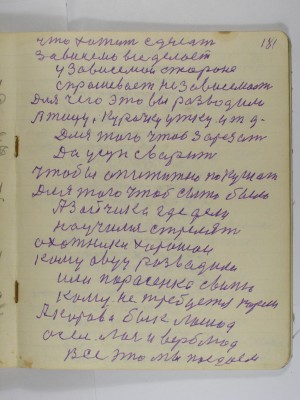 181
что хотит сделает
Зависемь вы делает
у Зависемой стороне
спрошевает не Зависемост
Для чего это вы разводили
Птицу, Курочку утку и т д-
Для того чтоб Зарезат
Да суп сварит
Чтобы опититно покушат
Для того чтоб сыто было
А Зайчика где дели
научилис стрелят
охотники хорошои
Кому овцу разводили
или поросенка свины
Кому не требуется
А корова бык Лошод
осел. Лоч и верблюд
все это мы поедаем